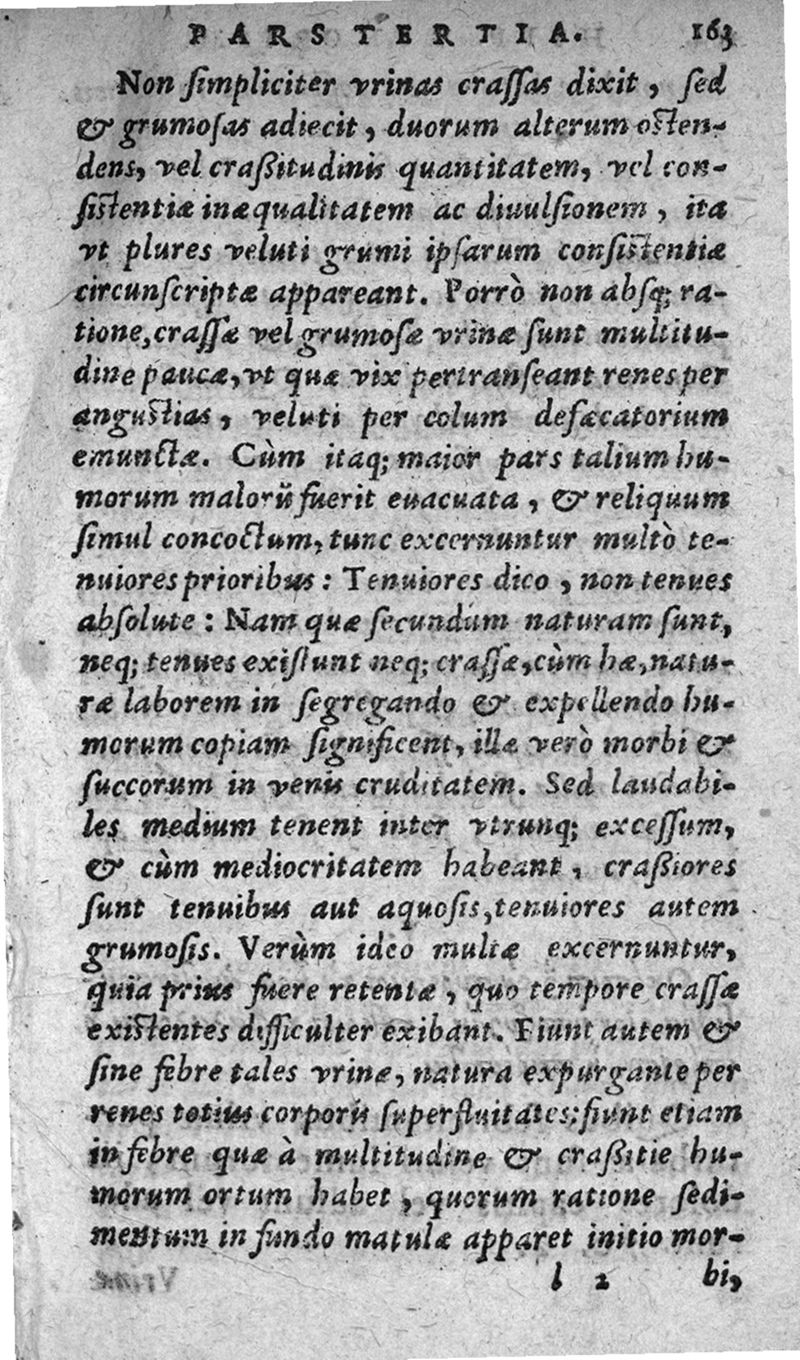 PARS TERTIA. 163
Non ſimpliciter vrinas craſſas dixit, ſed
& grumoſas adiecit, duorum alterum oſten-
dens, vel craßitudinis quantitatem, vel con-
ſiſtentiæ inæqualitatem ac diuulſionem, ita
vt plures veluti grumi ipſarum conſiſtentiæ
circunſcriptæ appareant. Porrò non abſq; ra-
tione, craſſæ vel grumoſæ vrinæ ſunt multitu-
dine paucæ, vt quæ vix pertranſeant renes per
anguſtias, veluti per colum defæcatorium
emunctæ. Cùm itaq; maior pars talium hu-
morum malorũ fuerit euacuata, & reliquum
ſimul concoctum, tunc excernuntur multò te-
nuiores prioribus: Tenuiores dico, non tenues
abſolute: Nam quæ ſecundum naturam ſunt,
neq; tenues exiſtunt neq; craſſæ, cùm hæ, natu-
ræ laborem in ſegregando & expellendo hu-
morum copiam ſignificent, illæ verò morbi &
ſuccorum in venis cruditatem. Sed laudabi-
les medium tenent inter vtrunq; exceſſum,
& cùm mediocritatem habeant, craßiores
ſunt tenuibus aut aquoſis, tenuiores autem
grumoſis. Verùm ideo multæ excernuntur,
quia prius fuere retentæ, quo tempore craſſæ
exiſtentes difficulter exibant. Fiunt autem &
ſine febre tales vrinæ, natura expurgante per
renes totius corporis ſuperfluitates: fiunt etiam
in febre quæ à multitudine & craßitie hu-
morum ortum habet, quorum ratione ſedi-
mentum in fundo matulæ apparet initio mor-
l 2 bi,